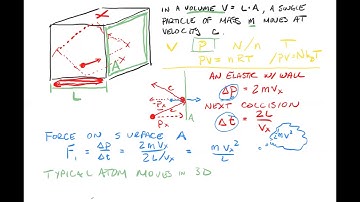 IN A VOLUME V = L·A, A SINGLE
PARTICLE OF MASS m MOVES AT
VELOCITY c.
V P N/n T
PV = nRT /PV = NkBT
A
L
AN ELASTIC w/ WALL
ΔP = 2mVx
NEXT COLLISION
Δt = 2L/Vx
c
Px
c
Px
FORCE ON SURFACE A
F1 = ΔP/Δt = 2mVx/2L/Vx = mVx²/L
TYPICAL ATOM MOVES IN 3D